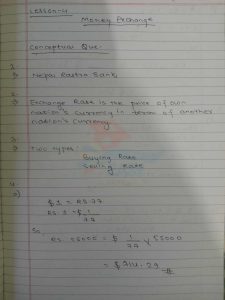 Lesson-4
Money Exchange
Conceptual Que:-
1.
→ Nepal Rastra Bank
2.
→ Exchange Rate is the price of own
nation's currency in term of another
nation's currency.
3.
→ Two types:
Buying Rate
Selling Rate
4.
a)
$ 1 = RS. 77
RS. 1 = $ 1/77
So,
RS. 55000 = $ 1/77 × 55000
= $ 714.29